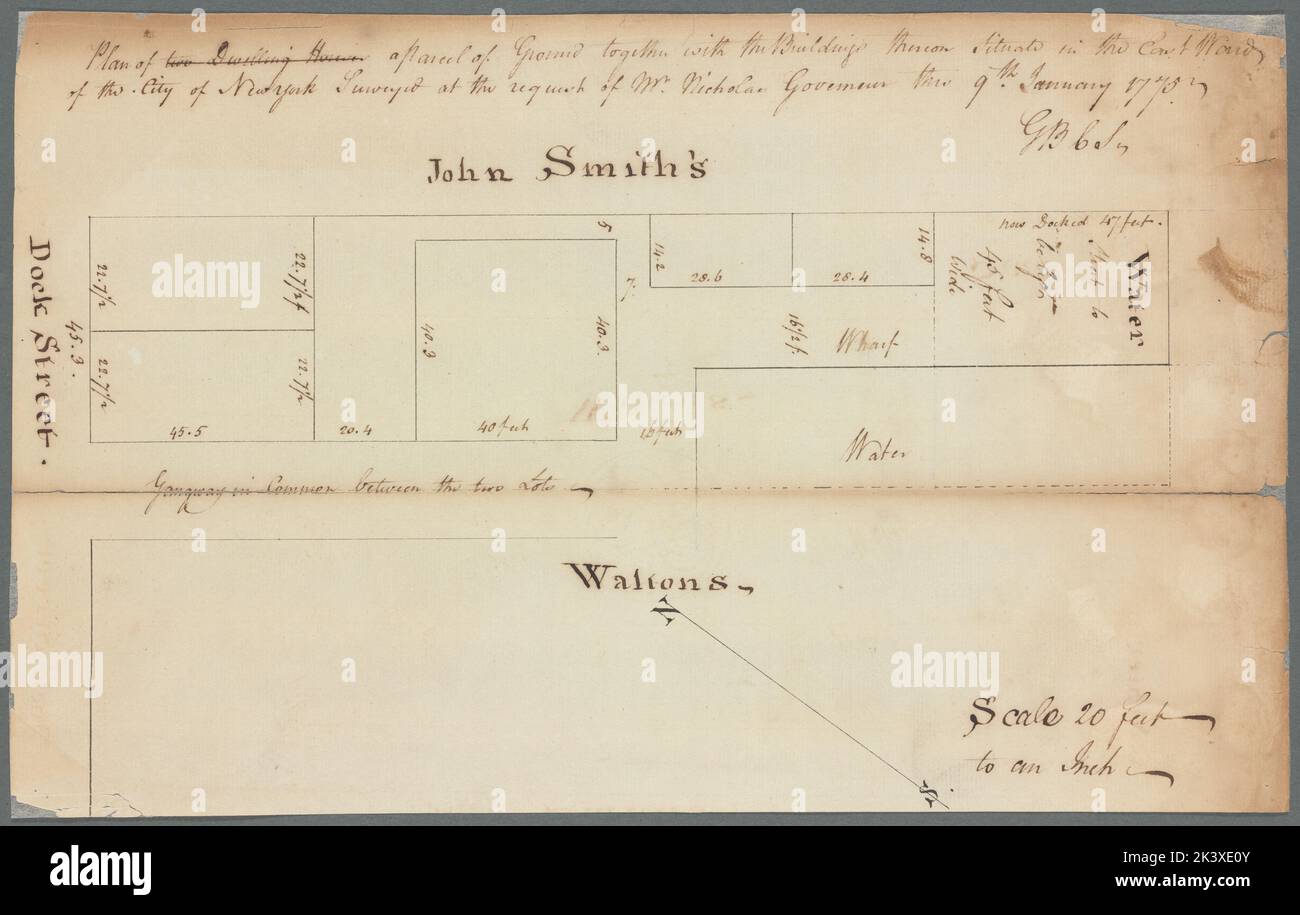 Plan of two Dwelling Houses a Parcel of Ground together with the Buildings thereon Situate in the East Ward
of the City of New York Surveyed at the request of Mr. Nicholas Governeur this 9th January 1775
GB CS
John Smith's
Dock Street.
45.3.
22.7½
22.7½ f
22.7½
22.7½
45.5
20.4
40.3
40.3.
40 feet
5
7.
14.2
28.6
28.4
14.8
16½ f.
Wharf
16 feet
now Docked 47 feet.
Water
Street to
be left
45 feet
Wide
Water
Gangway in Common between the two Lots
Waltons
N
S
Scale 20 feet
to an Inch
alamy
alamy
alamy
a
a
a
alamy
Image ID: 2K3XE0Y
www.alamy.com